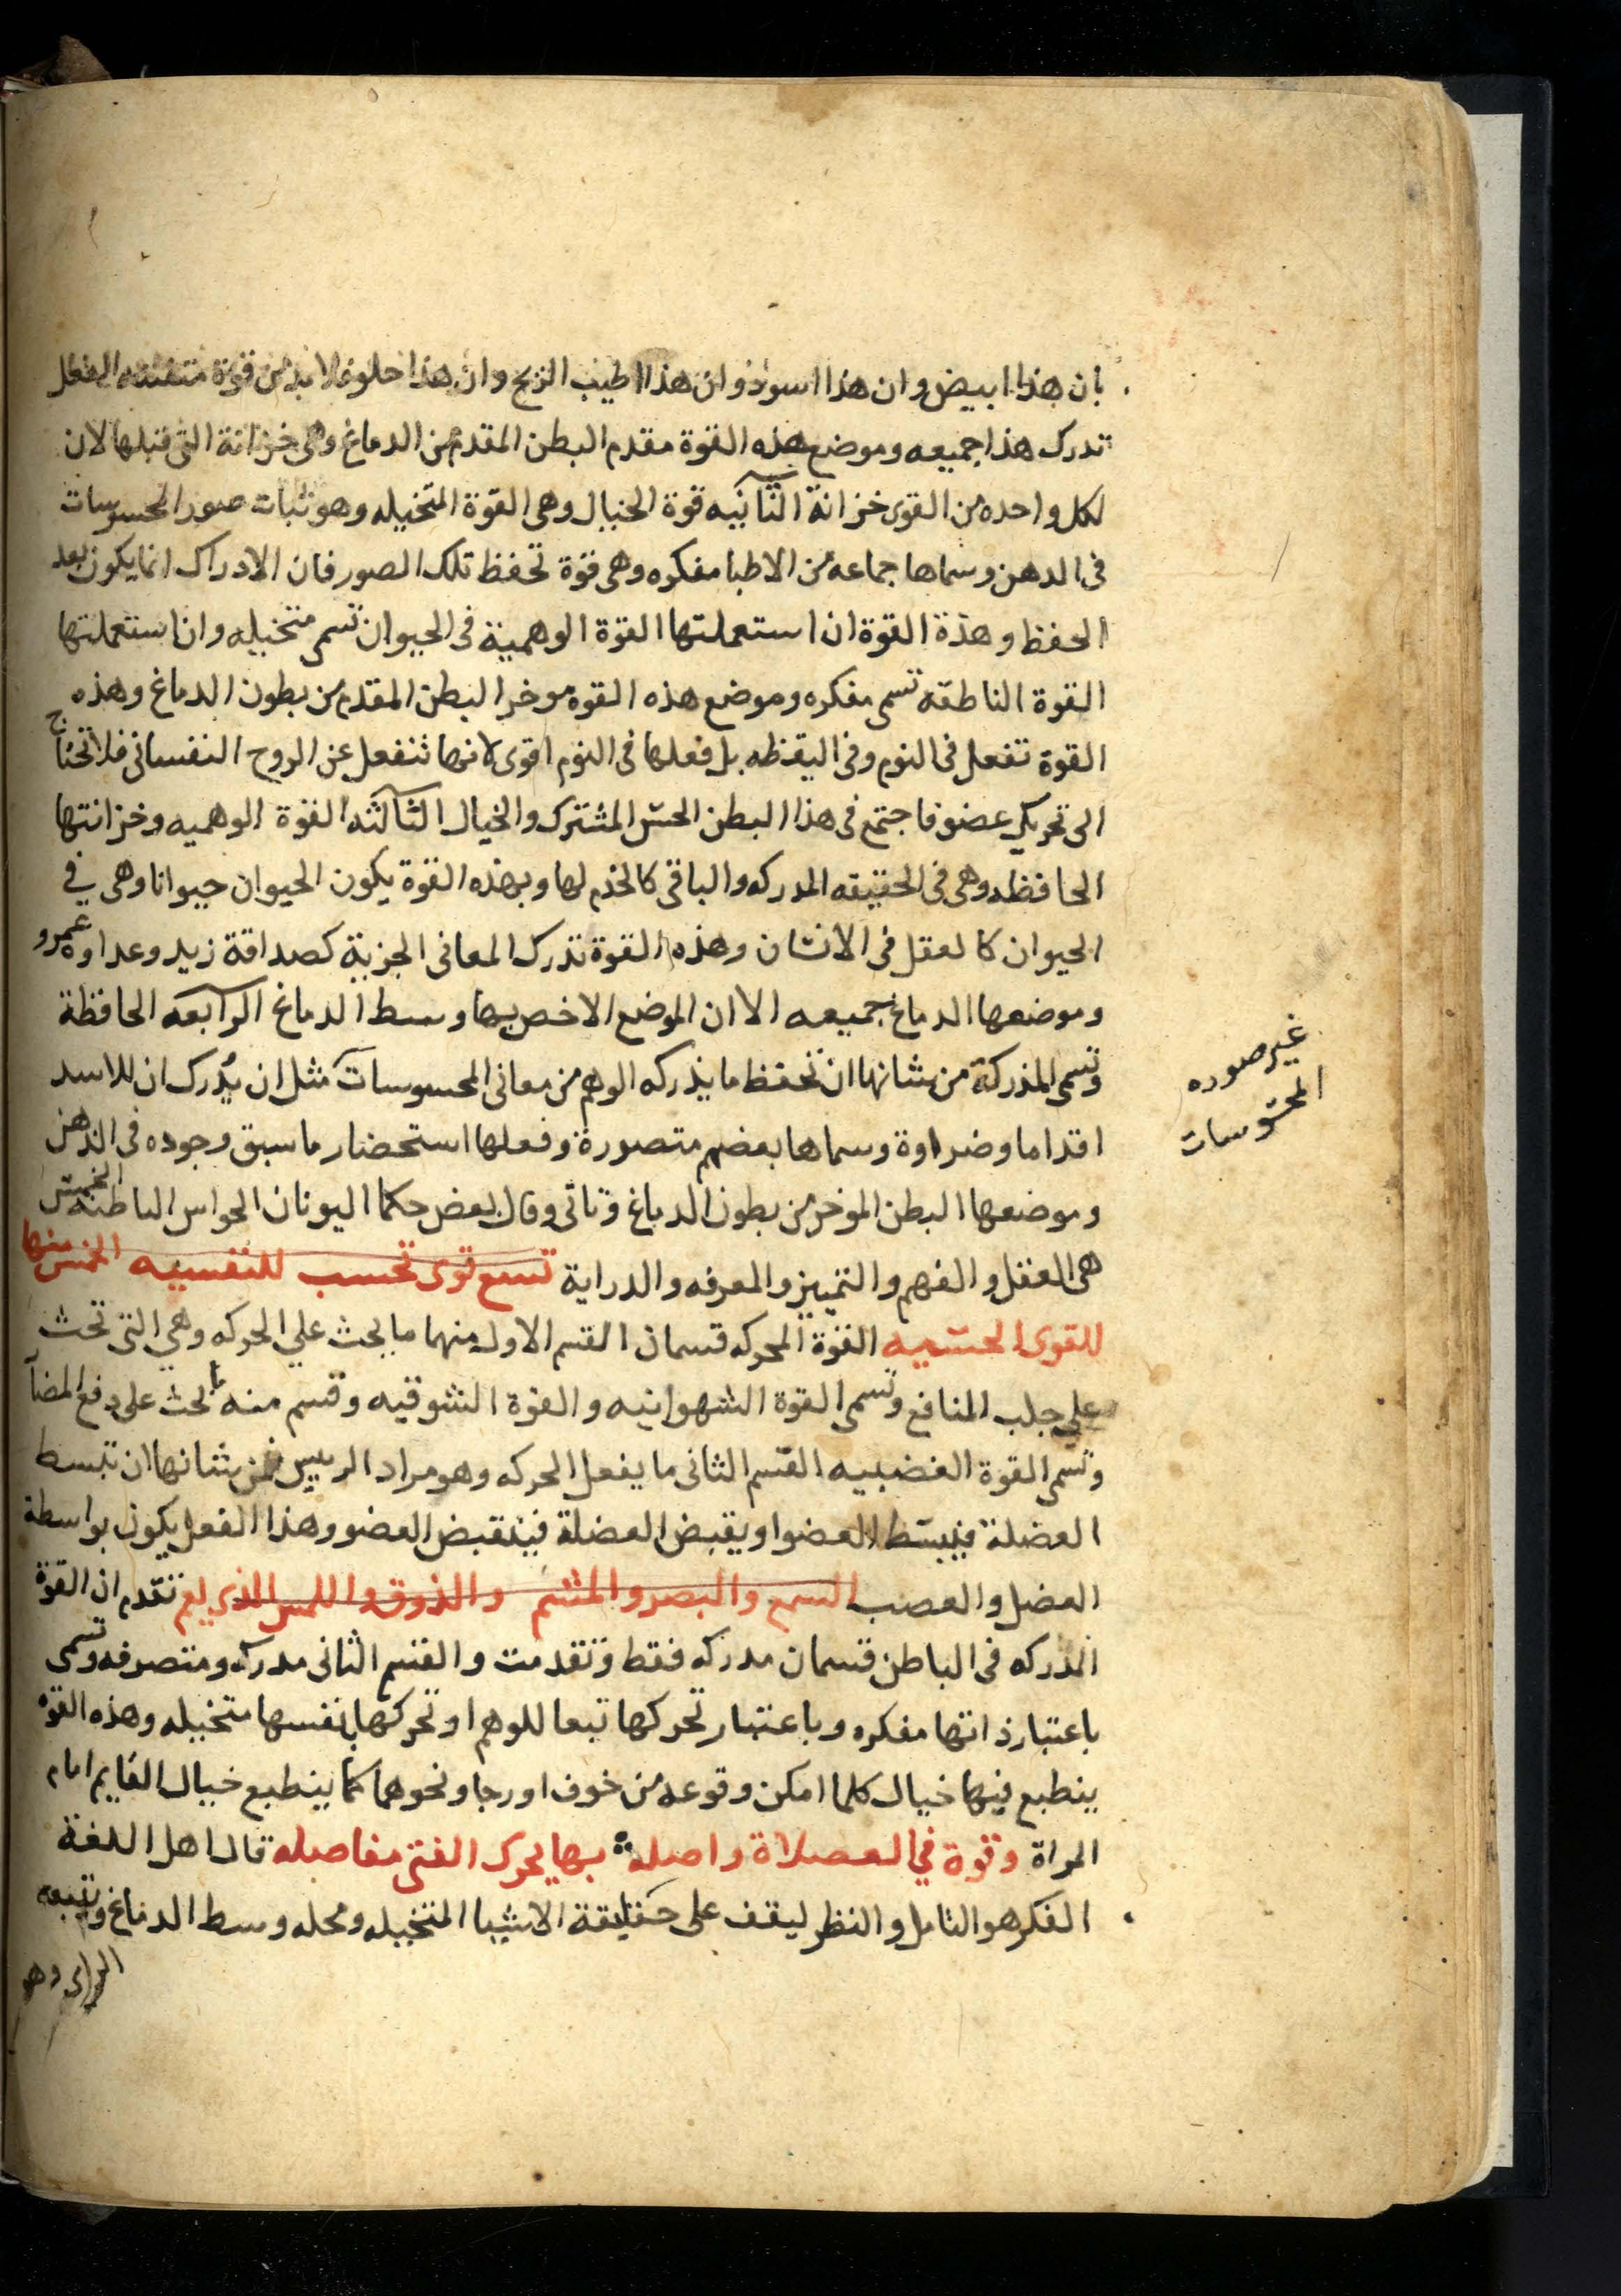 بان هذا ابيض وان هذا اسود وان هذا اطيب الريح وان هذا حلو فلا بد من قوة العقل
تدرك هذا جميعه وموضع هذه القوة مقدم البطن المقدم من الدماغ وهى خزانة التى قبلها لان
لكل واحده من القوى خزانة الثانيه قوة الخيال وهى القوة المتخيله وهو ثبات صور المحسوسات
فى الدهن وسماها جماعه من الاطبا مفكره وهى قوة تحفظ تلك الصور فان الادراك انما يكون بعد
الحفظ وهذة القوة ان استعملتها القوة الوهمية فى الحيوان تسمى متخيله وان استعملتها
القوة الناطقه تسمى مفكره وموضع هذه القوه موخر البطن المقدم من بطون الدماغ وهذه
القوة تفعل فى النوم وفى اليقظه بل فعلها فى النوم اقوى لانها تنفعل عن الروح النفسانى فلا تحتاج
الى تحريك عضو فاجتمع فى هذا البطن الحس المشترك والخيال الثالثه القوة الوهميه وخزانتها
الحافظه وهى فى الحقيقه المدركه والباقى كالخدم لها وبهذه القوة يكون الحيوان حيوانا وهى في
الحيوان كالعقل فى الانسان وهذه القوة تدرك المعانى الجزية كصداقة زيد وعداوه عمرو
وموضعها الدماغ جميعه الا ان الموضع الاخص بها وسط الدماغ الرابعه الحافظة
وتسمى المذركة من شانها ان تحفظ ما يذركه الوهم من معانى المحسوسات مثل ان يدرك ان للاسد
غير صوره
المحسوسات
اقداما وضراوة وسماها بعضهم متصورة وفعلها استحضار ما سبق وجوده فى الذهن
وموضعها البطن الموخر من بطون الدماغ وتاتى وقال بعض حكما اليونان الحواس الباطنه الخمس
هى العقل والفهم والتمييز والمعرفه والدراية تسع قوى تحسب للنفسيه الخمس منها
للقوى الحسيه القوة المحركه قسمان القسم الاول منهما ما يحث علي الحركه وهي التى تحث
على جلب المنافع وتسمى القوة الشهوانيه والقوة الشوقيه وقسم منه ما يحث على دفع المضآ
وتسمى القوة الغضبيه القسم الثانى ما يفعل الحركه وهو مراد الرييس فمن شانها ان تبسط
العضلة فينبسط العضو او يقبض العضلة فينقبض العضو وهذا الفعل يكون بواسطة
العضل والعصب السمع والبصر والمشم والذوق واللمس الذى يعم تقدم ان القوة
المذركه فى الباطن قسمان مدركه فقط وتقدمت والقسم الثانى مدركه ومتصرفه وتسمى
باعتبار ذاتها مفكره وباعتبار تحركها تبعا للوهم او تحركها بنفسها متخيله وهذه القوة
ينطبع فيها خيال كلما امكن وقوعه من خوف او رجا ونحوهما كما ينطبع خيال القايم امام
المراة وقوة في العضلاة واصله بها يحرك الفتى مفاصله قال اهل اللغة
الفكر هو التامل والنظر ليقف على حقيقة الاشيا المتخيله ومحله وسط الدماغ ويتبعه
الراى وهو